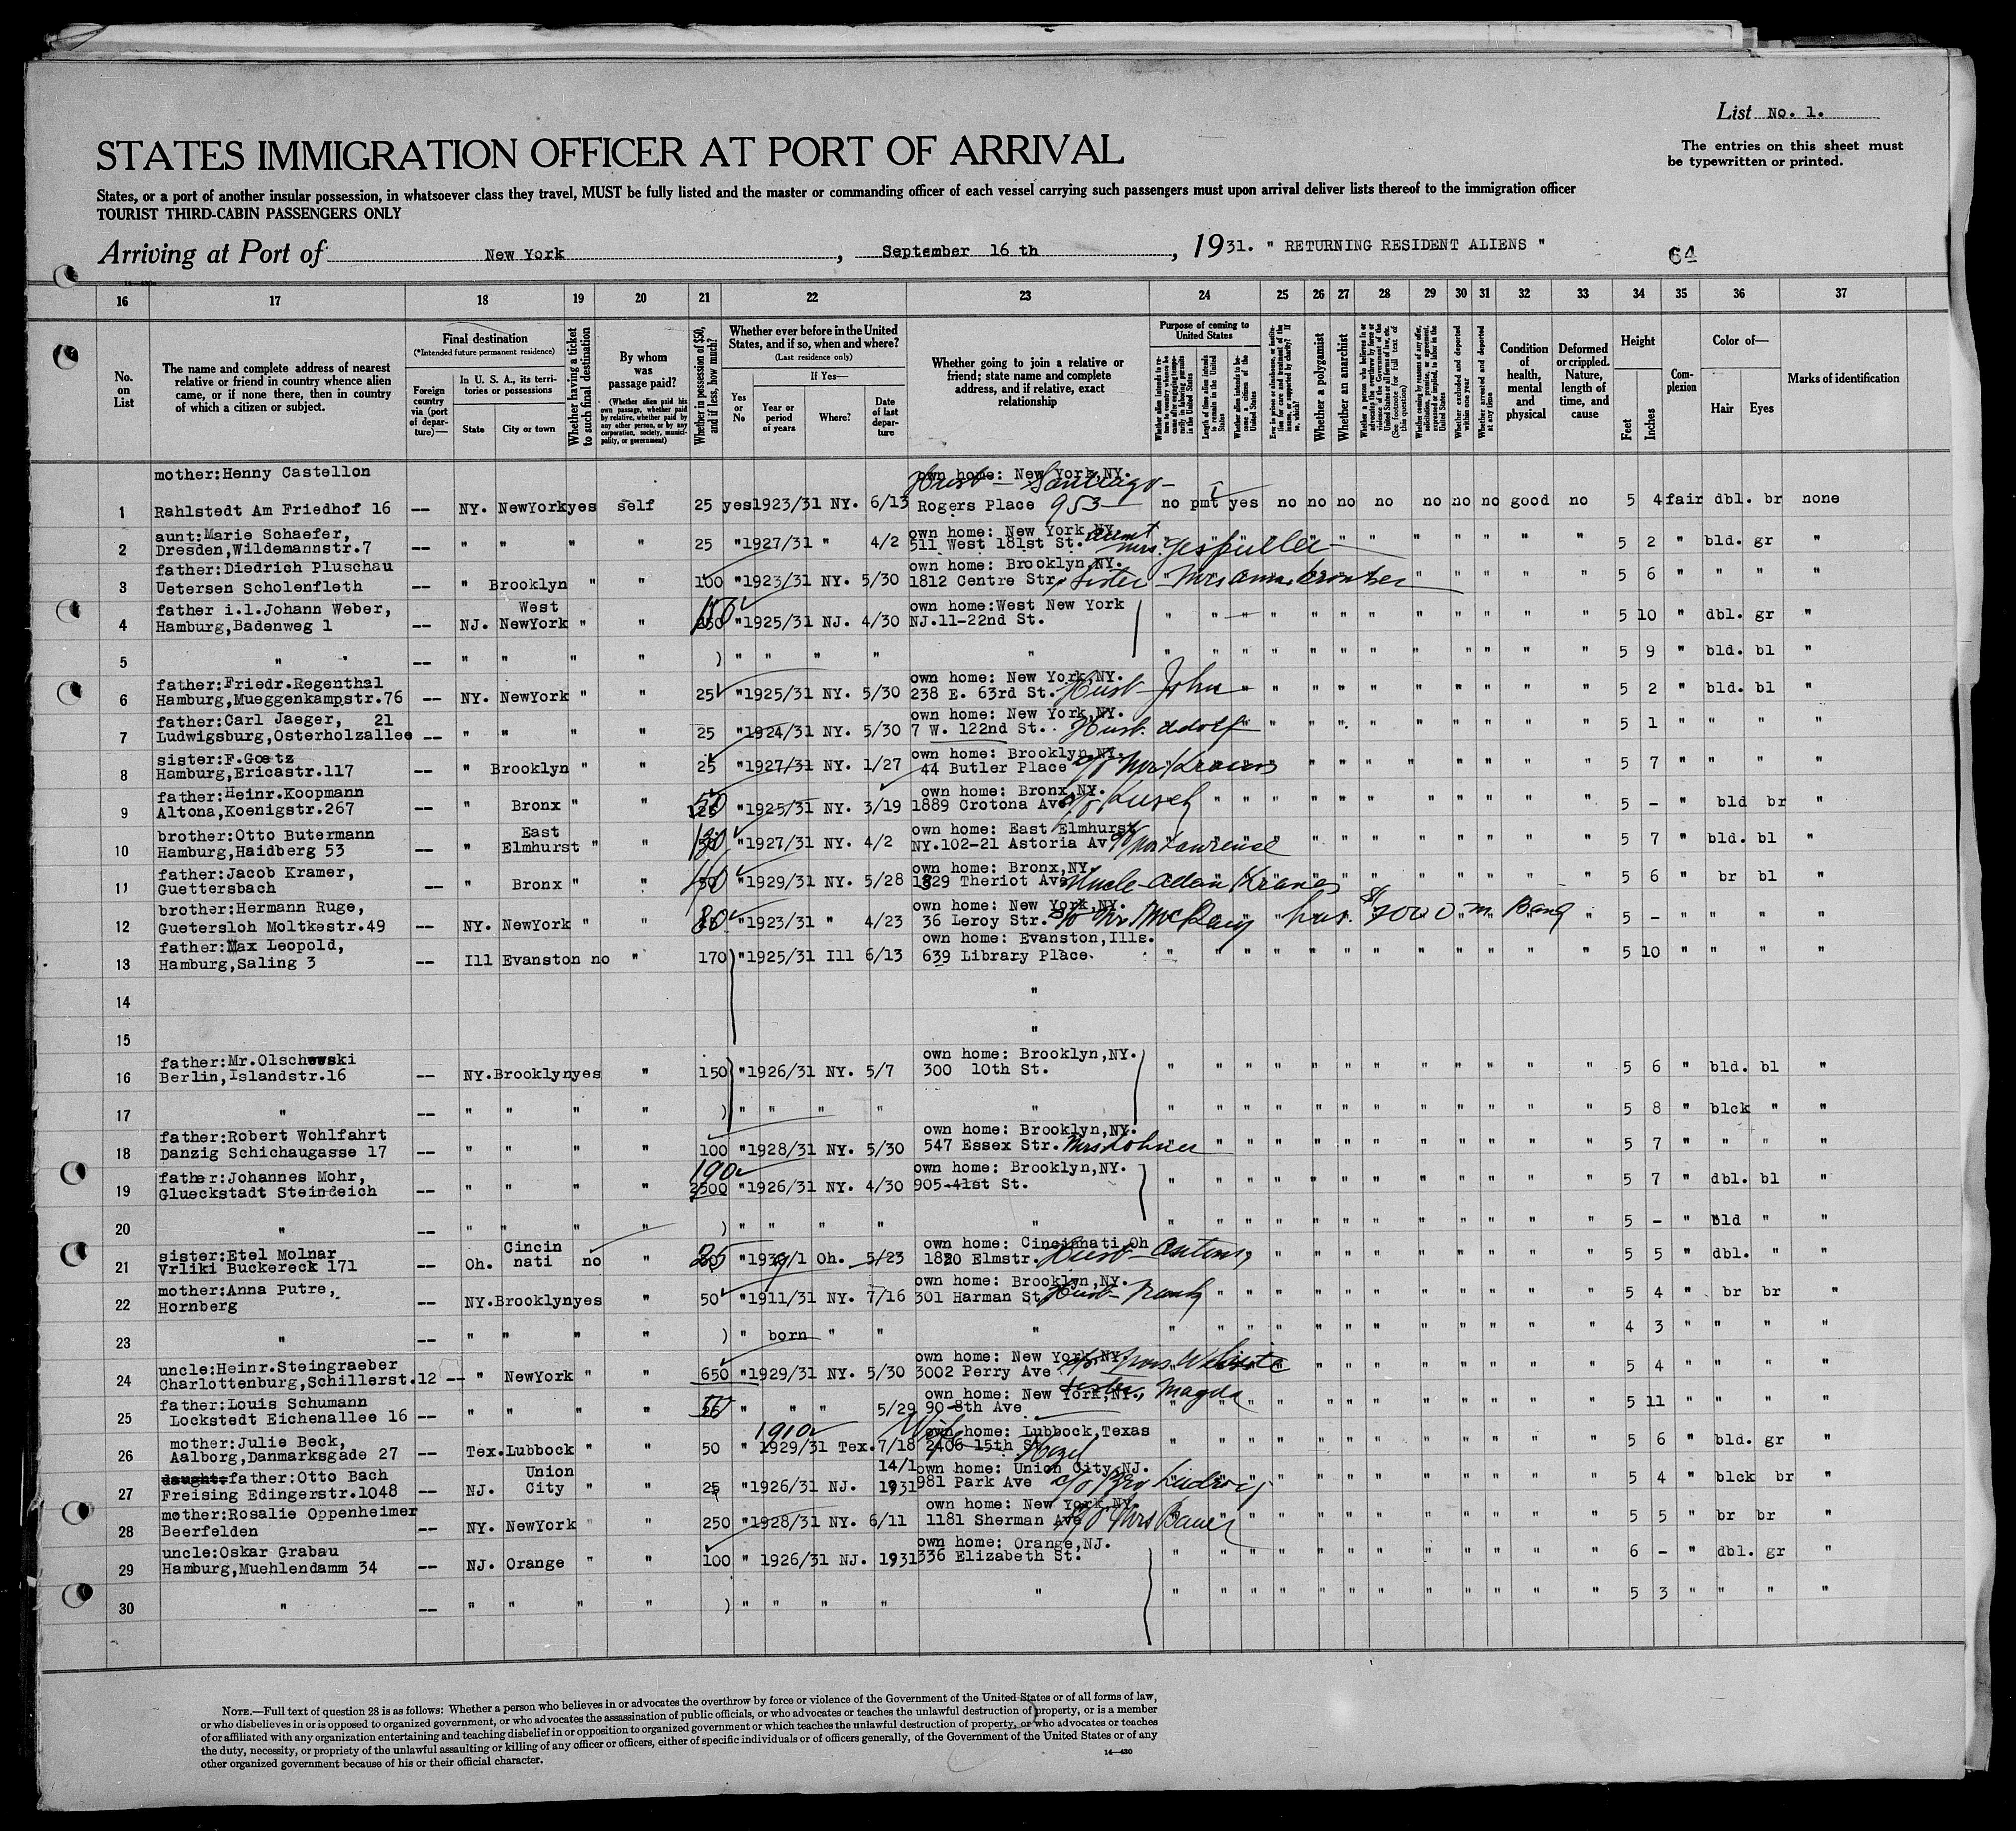 List No. 1.
STATES IMMIGRATION OFFICER AT PORT OF ARRIVAL
The entries on this sheet must
be typewritten or printed.
States, or a port of another insular possession, in whatsoever class they travel, MUST be fully listed and the master or commanding officer of each vessel carrying such passengers must upon arrival deliver lists thereof to the immigration officer
TOURIST THIRD-CABIN PASSENGERS ONLY
Arriving at Port of New York, September 16 th, 1931. " RETURNING RESIDENT ALIENS " 64
16 17 18 19 20 21 22 23 24 25 26 27 28 29 30 31 32 33 34 35 36 37
No. on List
The name and complete address of nearest relative or friend in country whence alien came, or if none there, then in country of which a citizen or subject.
Final destination
(*Intended future permanent residence)
Foreign country via (port of departure)—
In U. S. A., its territories or possessions
State City or town
Whether having a ticket to such final destination
By whom was passage paid?
(Whether alien paid his own passage, whether paid by relative, whether paid by any other person, or by any corporation, society, municipality, or government)
Whether in possession of $50, and if less, how much?
Whether ever before in the United States, and if so, when and where?
(Last residence only)
Yes or No
If Yes—
Year or period of years Where? Date of last departure
Whether going to join a relative or friend; state name and complete address, and if relative, exact relationship
Purpose of coming to United States
Whether a polygamist
Whether an anarchist
Whether excluded and deported within one year
Whether arrested and deported at any time
Condition of health, mental and physical
Deformed or crippled. Nature, length of time, and cause
Height
Feet Inches
Complexion
Color of—
Hair Eyes
Marks of identification
mother:Henny Castellon own home: New York,NY.
Husb - Santiago -
1 Rahlstedt Am Friedhof 16 -- NY. NewYork yes self 25 yes 1923/31 NY. 6/13 Rogers Place 953 no pmt yes no no no no no no no good no 5 4 fair dbl. br none
aunt:Marie Schaefer, own home: New York,NY.
2 Dresden,Wildemannstr.7 -- " " " " 25 " 1927/31 " 4/2 511 West 181st St. aunt Mrs. " " " " " " " 5 2 " bld. gr "
father:Diedrich Pluschau own home: Brooklyn,NY.
3 Uetersen Scholenfleth -- " Brooklyn " " 100 " 1923/31 NY. 5/30 1812 Centre Str. Sister - Mrs Anna " " " " " 5 6 " " " "
father i.l.Johann Weber, West own home:West New York
4 Hamburg,Badenweg 1 -- NJ. NewYork " " 150 " 1925/31 NJ. 4/30 NJ.11-22nd St. " " " " " " " " " " " " 5 10 " dbl. gr "
5 " -- " " " " ) " " " " " " " " " " " " " " " " " " 5 9 " bld. bl "
father:Friedr.Regenthal own home: New York,NY.
6 Hamburg,Mueggenkampstr.76 -- NY. NewYork " " 25 " 1925/31 NY. 5/30 238 E. 63rd St. Husb - John " " " " " " " " " " 5 2 " bld. bl "
father:Carl Jaeger, 21 own home: New York,NY.
7 Ludwigsburg,Osterholzallee -- " " " " 25 " 1924/31 NY. 5/30 7 W. 122nd St. Husb. Adolf " " " " " " " " " 5 1 " " " "
sister:F.Goetz own home: Brooklyn,NY.
8 Hamburg,Ericastr.117 -- " Brooklyn " " 25 " 1927/31 NY. 1/27 44 Butler Place c/o Mr. " " " " " " " " 5 7 " " " "
father:Heinr.Koopmann own home: Bronx,NY.
9 Altona,Koenigstr.267 -- " Bronx " " 50 125 " 1925/31 NY. 3/19 1889 Crotona Ave. c/o Kusch " " " " " " " " " " 5 - " bld br "
brother:Otto Butermann East own home: East Elmhurst
10 Hamburg,Haidberg 53 -- " Elmhurst " " 130 " 1927/31 NY. 4/2 NY.102-21 Astoria Av. c/o " " " " " " " " 5 7 " bld. bl "
father:Jacob Kramer, own home: Bronx,NY.
11 Guettersbach -- " Bronx " " " 1929/31 NY. 5/28 1829 Theriot Ave. Uncle - Adam " " " " " " " " 5 6 " br bl "
brother:Hermann Ruge, own home: New York,NY.
12 Guetersloh Moltkestr.49 -- NY. NewYork " " 80 " 1923/31 " 4/23 36 Leroy Str. c/o Mr. has 7000 in Bank 5 - " " " "
father:Max Leopold, own home: Evanston,Ills.
13 Hamburg,Saling 3 -- Ill Evanston no " 170 " 1925/31 Ill 6/13 639 Library Place. " " " " " " " " " " " " 5 10 " " " "
14 "
15 "
father:Mr.Olschewski own home: Brooklyn,NY.
16 Berlin,Islandstr.16 -- NY. Brooklyn yes " 150 " 1926/31 NY. 5/7 300 10th St. " " " " " " " " " " " " 5 6 " bld. bl "
17 " -- " " " " ) " " " " " " " " " " " " " " " " " " 5 8 " blck " "
father:Robert Wohlfahrt own home: Brooklyn,NY.
18 Danzig Schichaugasse 17 -- " " " " 100 " 1928/31 NY. 5/30 547 Essex Str. Mrs " " " " " " " " " " " 5 7 " " " "
father:Johannes Mohr, own home: Brooklyn,NY.
19 Glueckstadt Steindeich -- " " " " 190 2500 " 1926/31 NY. 4/30 905-41st St. " " " " " " " " " " " " 5 7 " dbl. bl "
20 " -- " " " " ) " " " " " " " " " " " " " " " " " " 5 - " bld " "
sister:Etel Molnar Cincin own home: Cincinnati,Oh
21 Vrliki Buckereck 171 -- Oh. nati no " 25 " Oh. 5/23 1820 Elmstr. Husb - Antony " " " " " " " " " " 5 5 " dbl. " "
mother:Anna Putre, own home: Brooklyn,NY.
22 Hornberg -- NY. Brooklyn yes " 50 " 1911/31 NY. 7/16 301 Harman St. Husb - Frank " " " " " " " " " " " 5 4 " br br "
23 " -- " " " " ) " born " " " " " " " " " " " " " " " " 4 3 " " " "
uncle:Heinr.Steingraeber own home: New York,NY.
24 Charlottenburg,Schillerst.12 -- " NewYork " " 650 " 1929/31 NY. 5/30 3002 Perry Ave c/o Mrs. " " " " " " " " 5 4 " " " "
father:Louis Schumann own home: New York,NY., sister, Magda
25 Lockstedt Eichenallee 16 -- " " " " 50 " " " 5/29 90-8th Ave " " " " " " " " " " " " 5 11 " " " "
mother:Julie Beck, 1910 Wife own home: Lubbock,Texas
26 Aalborg,Danmarksgade 27 -- Tex. Lubbock " " 50 " 1929/31 Tex. 7/18 2406 15th St. Hazel " " " " " " " " " " " " 5 6 " bld. gr "
father:Otto Bach Union 14/1 own home: Union City,NJ.
27 Freising Edingerstr.1048 -- NJ. City " " 25 " 1926/31 NJ. 1931 981 Park Ave c/o Bro Ludwig " " " " " " " " " 5 4 " blck br "
mother:Rosalie Oppenheimer own home: New York,NY.
28 Beerfelden -- NY. NewYork " " 250 " 1928/31 NY. 6/11 1181 Sherman Ave c/o Mrs Bauer " " " " " " " " " " 5 5 " br br "
uncle:Oskar Grabau own home: Orange,NJ.
29 Hamburg,Muehlendamm 34 -- NJ. Orange " " 100 " 1926/31 NJ. 1931 336 Elizabeth St. " " " " " " " " " " " " 6 - " dbl. gr "
30 " -- " " " " ) " " " " " " " " " " " " " " " " " " 5 3 " " " "
NOTE.—Full text of question 28 is as follows: Whether a person who believes in or advocates the overthrow by force or violence of the Government of the United States or of all forms of law,
or who disbelieves in or is opposed to organized government, or who advocates the assassination of public officials, or who advocates or teaches the unlawful destruction of property, or is a member
of or affiliated with any organization entertaining and teaching disbelief in or opposition to organized government or which teaches the unlawful destruction of property, or who advocates or teaches
the duty, necessity, or propriety of the unlawful assaulting or killing of any officer or officers, either of specific individuals or of officers generally, of the Government of the United States or of any
other organized government because of his or their official character.
14—430